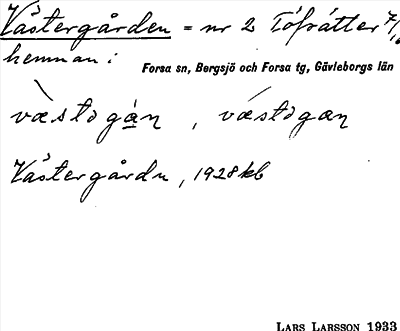 Västergården = nr 2 Tófsätter 7/16
hemman:
Forsa sn, Bergsjö och Forsa tg, Gävleborgs län
væstəgàn, væstəgan
Västergårdn, 1928 kb
LARS LARSSON 1933